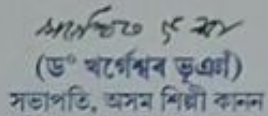 (ড° খৰ্গেশ্বৰ ভূঞা)
সভাপতি, অসম শিল্পী কানন